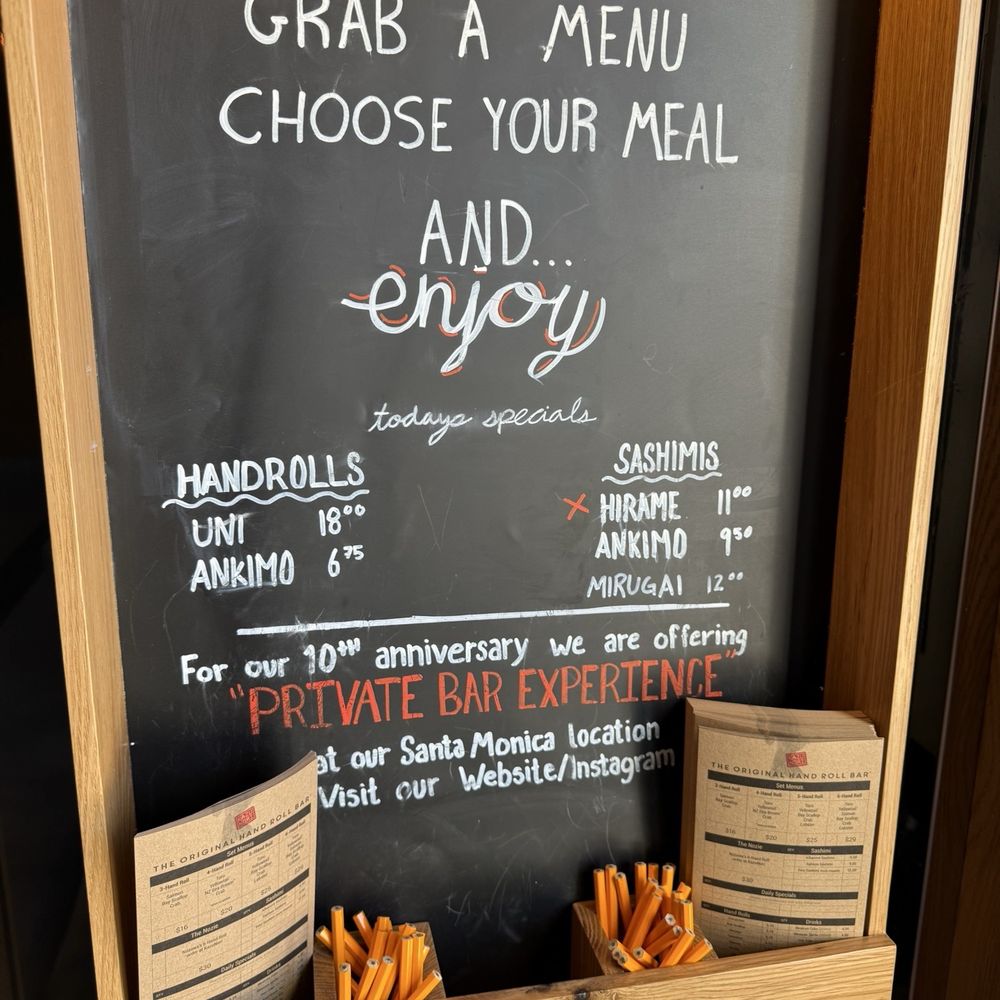 GRAB A MENU
CHOOSE YOUR MEAL
AND...
enjoy
todays specials
HANDROLLS
UNI 18⁰⁰
ANKIMO 6⁷⁵
SASHIMIS
X HIRAME 11⁰⁰
ANKIMO 9⁵⁰
MIRUGAI 12⁰⁰
For our 10TH anniversary we are offering
"PRIVATE BAR EXPERIENCE"
at our Santa Monica location
Visit our Website/Instagram
THE ORIGINAL HAND ROLL BAR
Set Menus
3-Hand Roll 4-Hand Roll 5-Hand Roll
Salmon
Bay Scallop
Crab
$16 $20 $25
The Nozie Sashimi
$30
Daily Specials
THE ORIGINAL HAND ROLL BAR
Set Menus
3-Hand Roll 4-Hand Roll 5-Hand Roll 6-Hand Roll
Salmon
Bay Scallop
Crab
$16 $20 $25 $29
The Nozie Sashimi
$30
Daily Specials
Hand Rolls Drinks